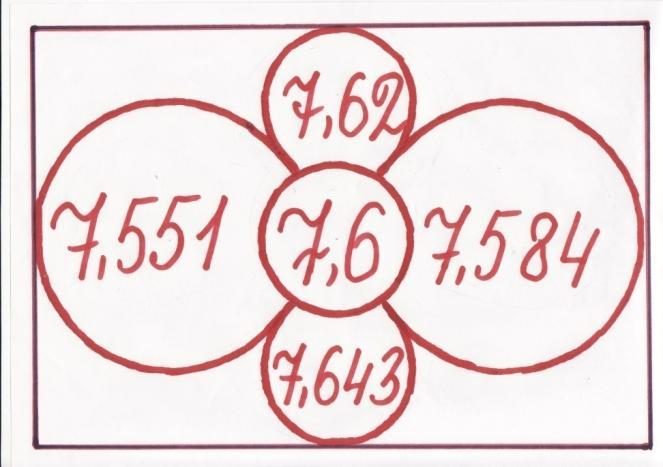 7,62
7,551 7,6 7,584
7,643